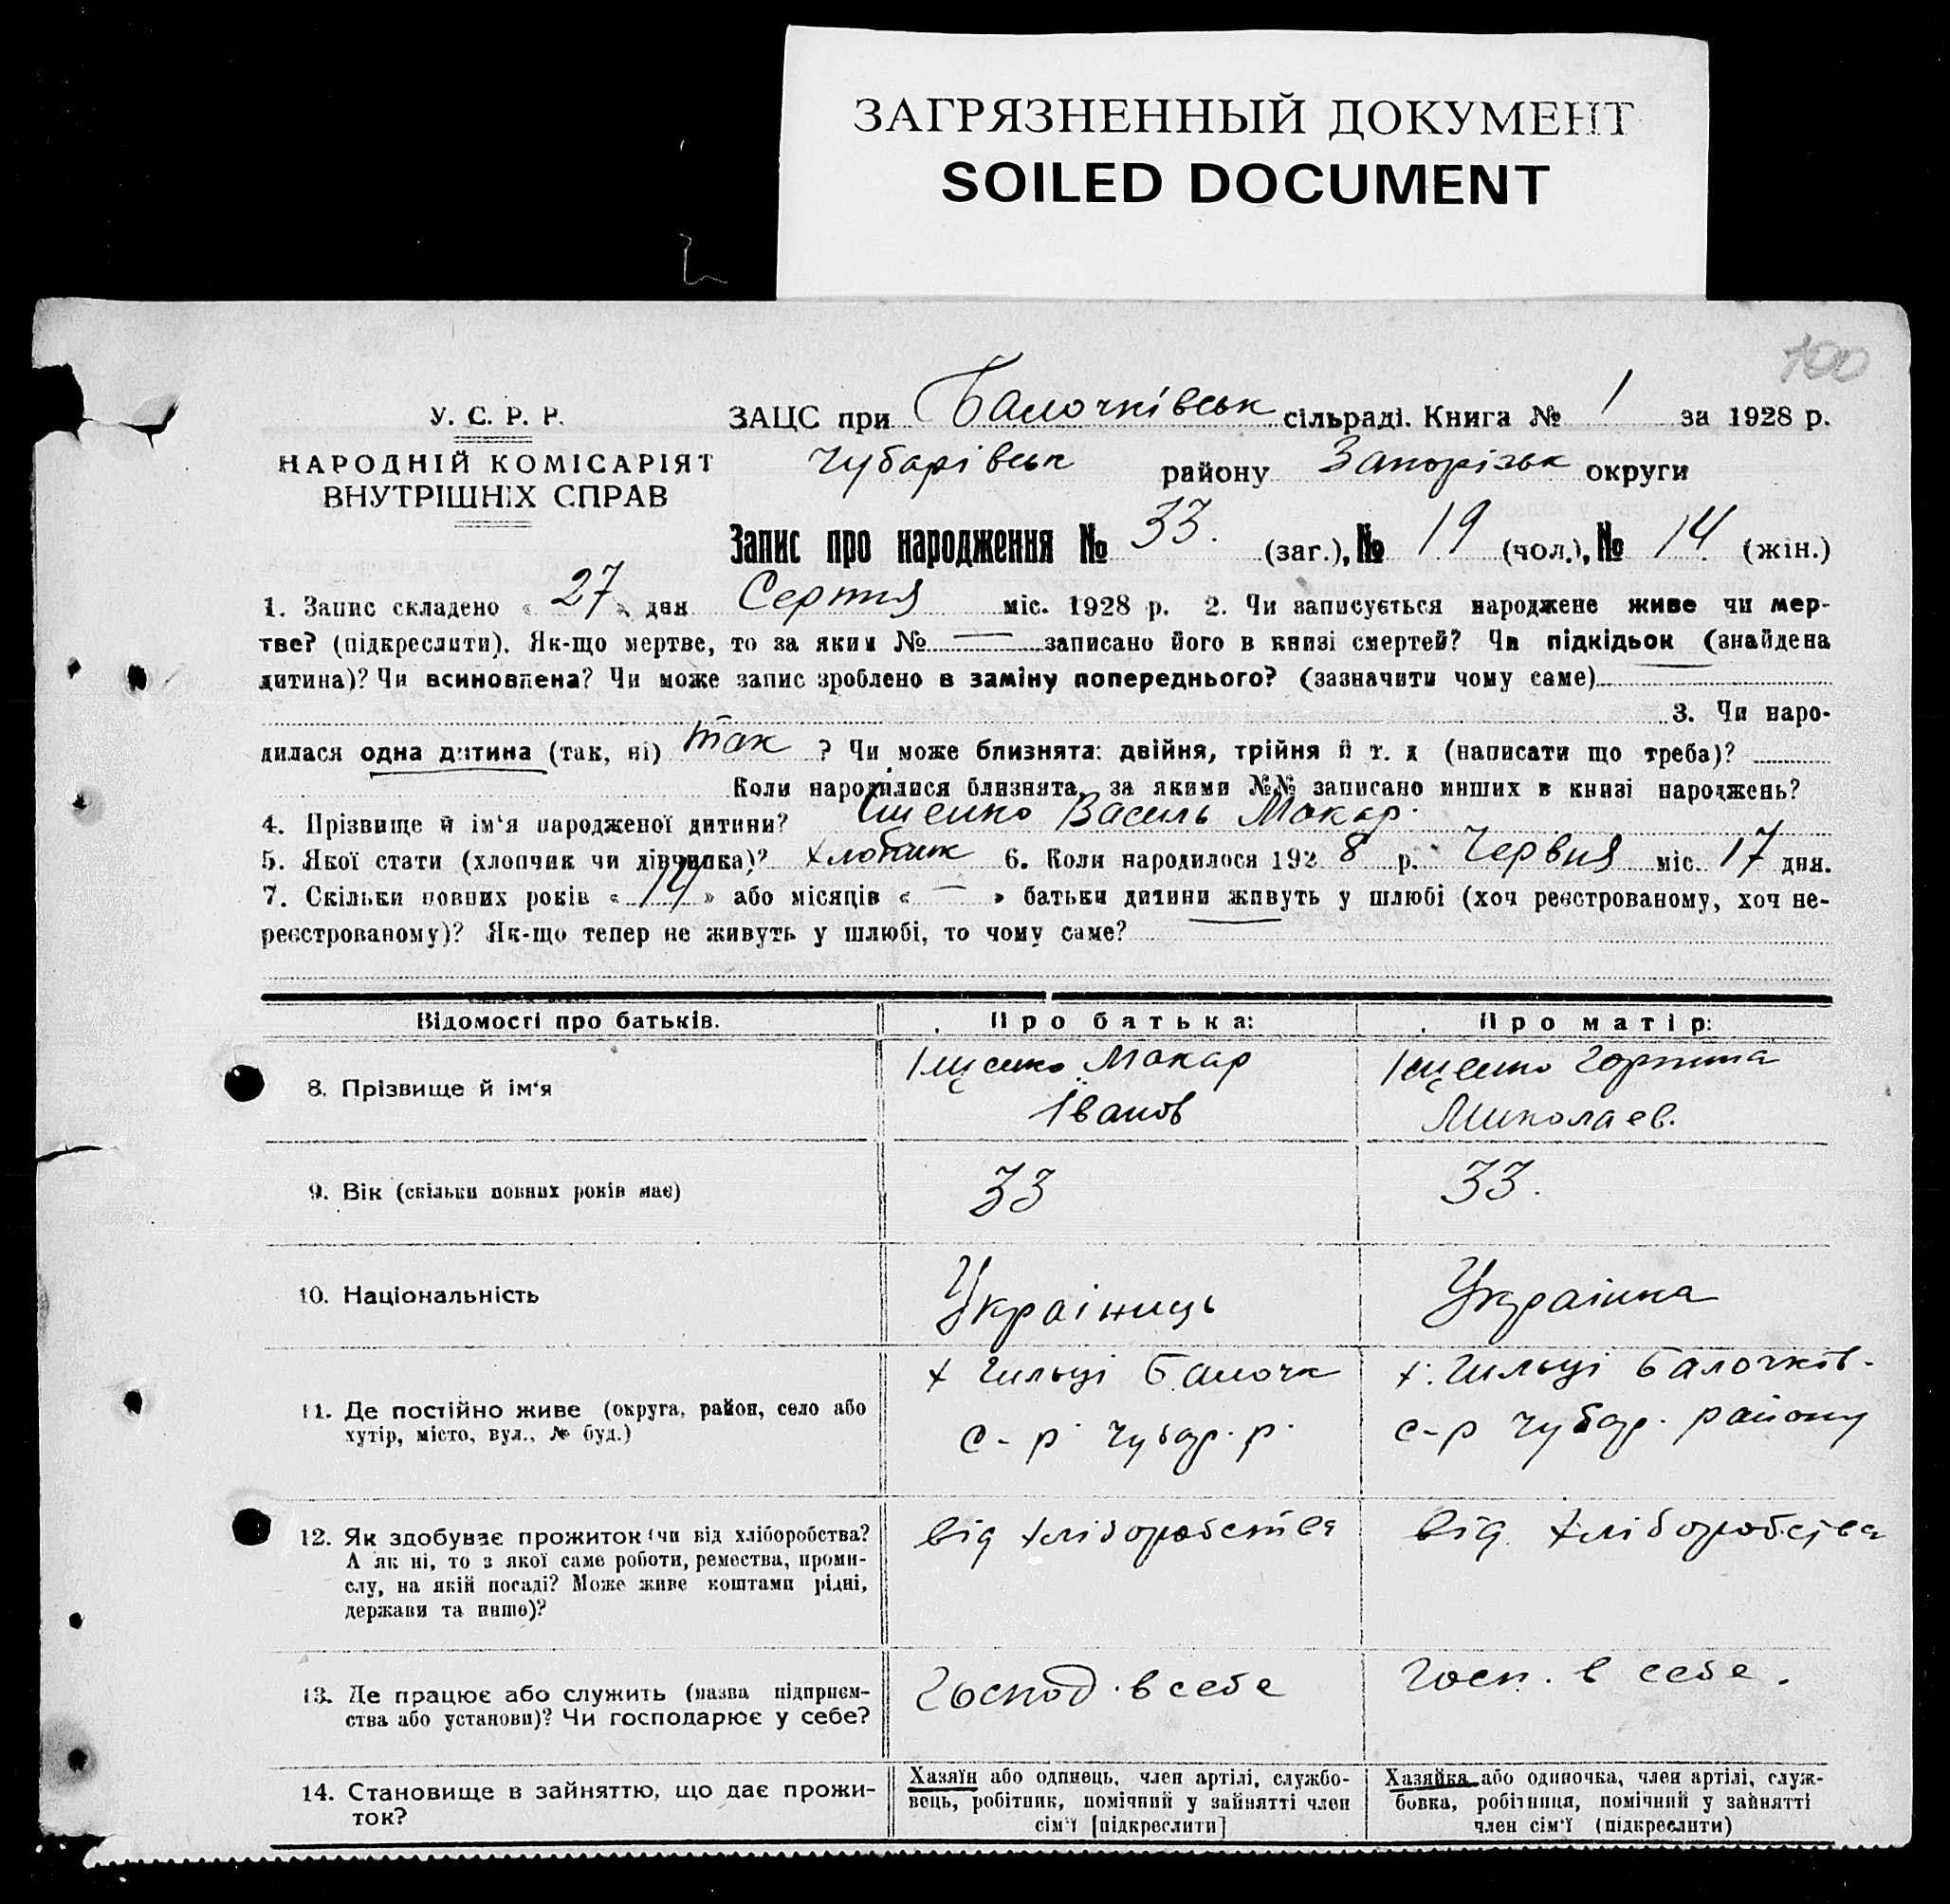 ЗАГРЯЗНЕННЫЙ ДОКУМЕНТ
SOILED DOCUMENT
100
У. С. Р. Р.
НАРОДНІЙ КОМІСАРІЯТ
ВНУТРІШНІХ СПРАВ
ЗАЦС при Балочківськ сільраді. Книга № 1 за 1928 р.
Чубарівськ району Запорізьк округи
Запис про народження № 33. (заг.), № 19 (чол.), № 14 (жін.)
1. Запис складено « 27 » дня Серпня міс. 1928 р. 2. Чи записується народжене живе чи мер-
тве? (підкреслити). Як-що мертве, то за яким № — записано його в книзі смертей? Чи підкідьок (знайдена
дитина)? Чи всиновлена? Чи може запис зроблено в заміну попереднього? (зазначити чому саме)
3. Чи наро-
дилася одна дитина (так, ні) так ? Чи може близнята: двійня, трійня й т. д (написати що треба)?
Коли народилися близнята, за якими №№ записано инших в книзі народжень?
4. Прізвище й ім'я народженої дитини? Іщенко Василь Макар.
5. Якої стати (хлопчик чи дівчинка)? хлопчик 6. Коли народилося 192 8 р. Червня міс. 17 дня.
7. Скільки повних років « 14 » або місяців « — » батьки дитини живуть у шлюбі (хоч реєстрованому, хоч не-
реєстрованому)? Як-що тепер не живуть у шлюбі, то чому саме?
Відомості про батьків. Про батька: Про матір:
8. Прізвище й ім'я Іщенко Макар Іванов Іщенко Горпина Миколаев.
9. Вік (скільки повних років має) 33 33.
10. Національність Україниць Українка
11. Де постійно живе (округа, район, село або
хутір, місто, вул., № буд.)
х Гильці Балочк
с-р Чубар. р.
х. Гильці Балочків-
с-р Чубар. району
12. Як здобуває прожиток (чи від хліборобства?
А як ні, то з якої саме роботи, ремества, проми-
слу, на якій посаді? Може живе коштами рідні,
держави та инше)?
від хліборобства
від хліборобства
13. Де працює або служить (назва підприєм-
ства або установи)? Чи господарює у себе?
Господ. в себе
Госп. в себе.
14. Становище в зайняттю, що дає прожи-
ток?
Хазяїн або одинець, член артілі, службо-
вець, робітник, помічний у зайнятті член
сім'ї [підкреслити]
Хазяйка або одиночка, член артілі, служ-
бовка, робітниця, помічний у зайнятті
член сім'ї (підкреслити)